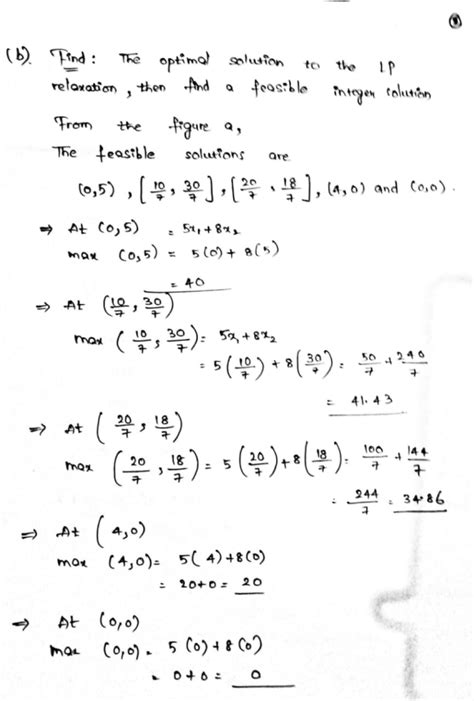 (b). Find: The optimal solution to the LP
relaxation, then find a feasible integer solution
From the figure a,
The feasible solutions are
(0,5), [10/7, 30/7], [20/7, 18/7], (4,0) and (0,0).
⇒ At (0,5) = 5x₁+8x₂
max (0,5) = 5(0)+8(5)
= 40
⇒ At (10/7, 30/7)
max (10/7, 30/7) = 5x₁+8x₂
= 5(10/7)+8(30/7) = 50/7 + 240/7
= 41.43
⇒ At (20/7, 18/7)
max (20/7, 18/7) = 5(20/7)+8(18/7) = 100/7 + 144/7
= 244/7 = 34.86
⇒ At (4,0)
max (4,0) = 5(4)+8(0)
= 20+0 = 20
⇒ At (0,0)
max (0,0) = 5(0)+8(0)
= 0+0 = 0